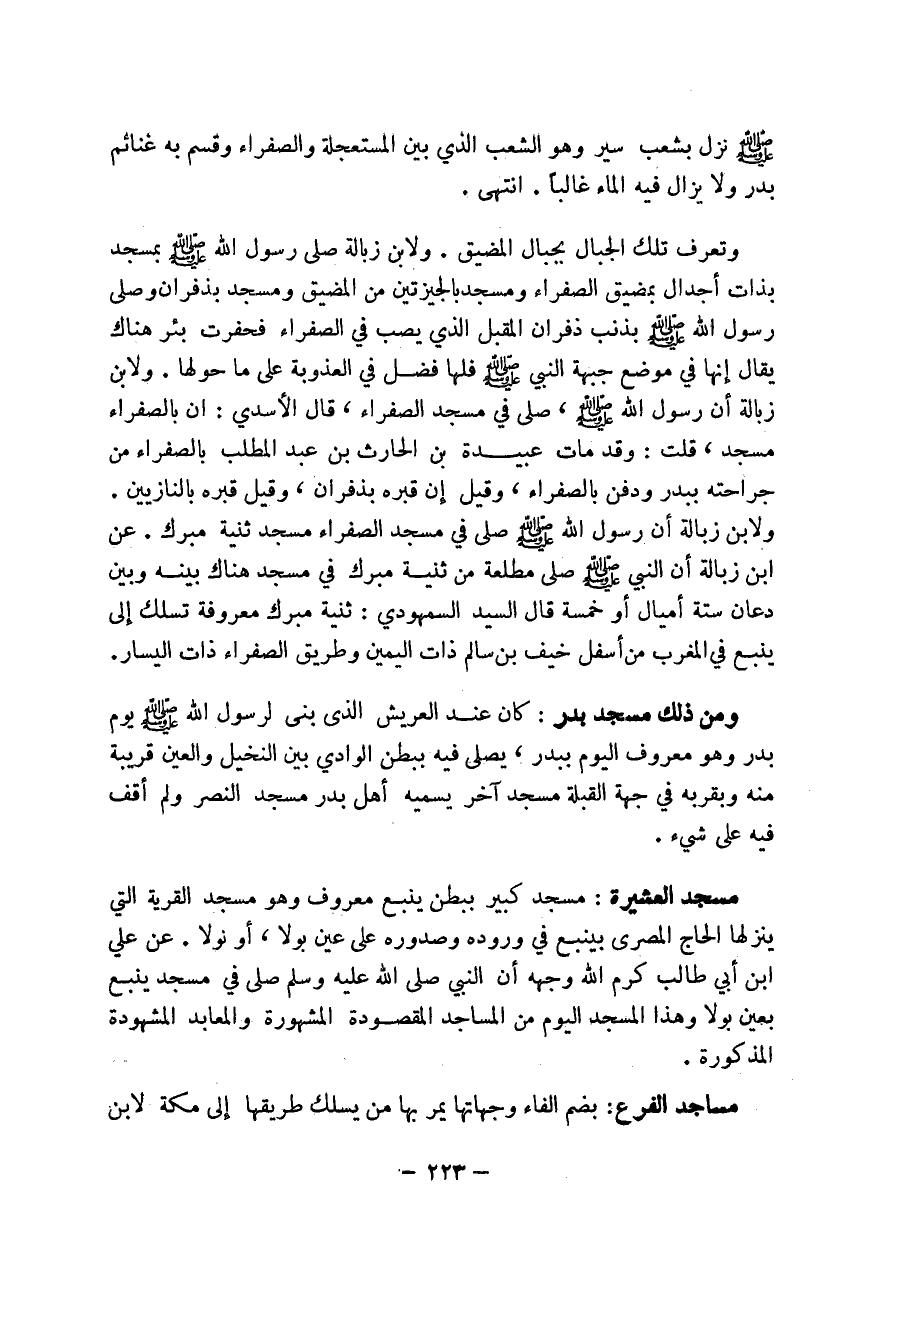 ﷺ نزل بشعب سير وهو الشعب الذي بين المستعجلة والصفراء وقسم به غنائم
بدر ولا يزال فيه الماء غالباً . انتهى .
وتعرف تلك الجبال بجبال المضيق . ولابن زبالة صلى رسول الله ﷺ بمسجد
بذات أجدال بمضيق الصفراء ومسجد بالجيزتين من المضيق ومسجد بذفران وصلى
رسول الله ﷺ بذنب ذفران المقبل الذي يصب في الصفراء فحفرت بئر هناك
يقال إنها في موضع جبهة النبي ﷺ فلها فضل في العذوبة على ما حولها . ولابن
زبالة أن رسول الله ﷺ ، صلى في مسجد الصفراء ، قال الأسدي : ان بالصفراء
مسجد ، قلت : وقد مات عبيدة بن الحارث بن عبد المطلب بالصفراء من
جراحته ببدر ودفن بالصفراء ، وقيل إن قبره بذفران ، وقيل قبره بالنازيين .
ولابن زبالة أن رسول الله ﷺ صلى في مسجد الصفراء مسجد ثنية مبرك . عن
ابن زبالة أن النبي ﷺ صلى مطلعة من ثنية مبرك في مسجد هناك بينه وبين
دعان ستة أميال أو خمسة قال السيد السمهودي : ثنية مبرك معروفة تسلك إلى
ينبع في المغرب من أسفل خيف بن سالم ذات اليمين وطريق الصفراء ذات اليسار.
ومن ذلك مسجد بدر : كان عند العريش الذى بنى لرسول الله ﷺ يوم
بدر وهو معروف اليوم ببدر ، يصلى فيه ببطن الوادي بين النخيل والعين قريبة
منه وبقربه في جهة القبلة مسجد آخر يسميه أهل بدر مسجد النصر ولم أقف
فيه على شيء .
مسجد العشيرة : مسجد كبير ببطن ينبع معروف وهو مسجد القرية التي
ينزلها الحاج المصرى بينبع في وروده وصدوره على عين بولا ، أو نولا . عن علي
ابن أبي طالب كرم الله وجهه أن النبي صلى الله عليه وسلم صلى في مسجد ينبع
بعين بولا وهذا المسجد اليوم من المساجد المقصودة المشهورة والمعابد المشهودة
المذكورة .
مساجد الفرع: بضم الفاء وجهاتها يمر بها من يسلك طريقها إلى مكة لابن
— ٢٢٣ —